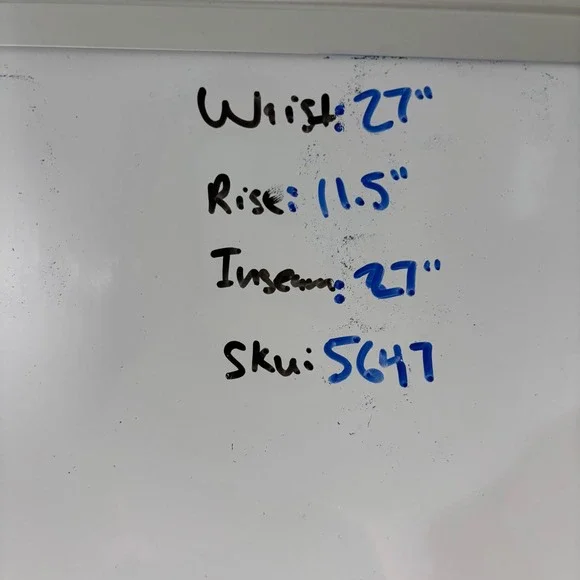 Waist: 27"
Rise: 11.5"
Inseam: 27"
Sku: 5647